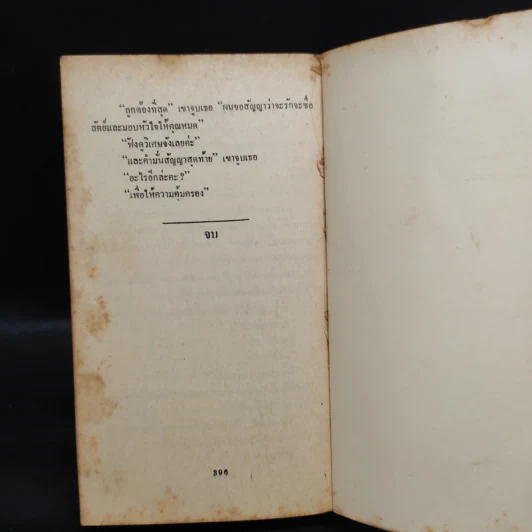 “ถูกต้องที่สุด” เขาจูบเธอ “ผมขอสัญญาว่าจะรักจะซื่อ
สัตย์และมอบหัวใจให้คุณหมด”
“ฟังดูวิเศษจังเลยค่ะ”
“และคำมั่นสัญญาสุดท้าย” เขาจูบเธอ
“อะไรอีกล่ะคะ?”
“เพื่อให้ความคุ้มครอง”
จบ
396